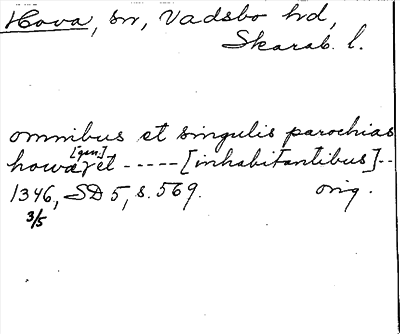 Hova, sn, Vadsbo hd,
Skarab. l.
omnibus et singulis parochias
[gen.]
howaret ----- [inhabitantibus]--
1346, SD 5, s. 569. orig.
3/5